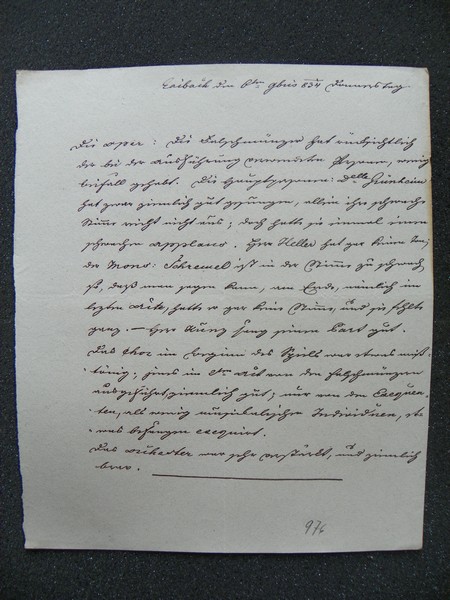 Laibach den 6ten 9bris 834 Donnerstag
Die Oper: Die Falschmünzer hat rücksichtlich
der bei der Ausführung verwendeten Personen, wenig
beifall gehabt. Die Hauptperson: Delle Kunheim
hat zwar ziemlich gut gesungen, allein ihre schwache
Stimme reicht nicht aus; doch hatte sie einmal einen
schwachen applaus. Herr Keller hat gar keine
der Mons: Schremel ist in der Stimme zu schwach
ist, daß man sagen kann, am Ende, nämlich im
letzten Akt, hatte er gar keine Stimme, und sie fehlte
ganz. — Herr Kunz sang seinen Part gut.
Das Chor im beginne des Spiels war etwas miß-
tönig; jenes im 2ten Akt von den Falschmünzern
ausgeführt, ziemlich gut; nur von den Exequen-
ten, als wenig musikalischen Individuen, et-
was befangen exequirt.
Das Orchester war sehr verstärkt, und ziemlich
brav.
976